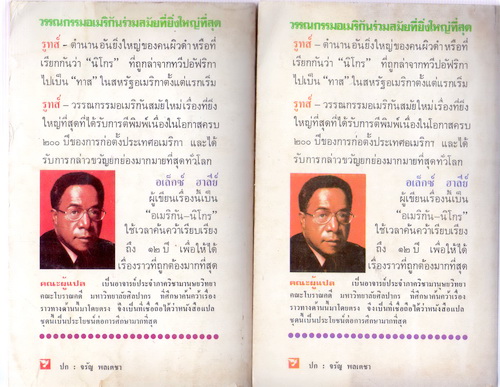 วรรณกรรมอเมริกันร่วมสมัยที่ยิ่งใหญ่ที่สุด
รูทส์ – ตำนานอันยิ่งใหญ่ของคนผิวดำหรือที่
เรียกกันว่า "นิโกร" ที่ถูกล่าจากทวีปอัฟริกา
ไปเป็น "ทาส" ในสหรัฐอเมริกาตั้งแต่แรกเริ่ม
รูทส์ – วรรณกรรมอเมริกันสมัยใหม่เรื่องที่ยิ่ง
ใหญ่ที่สุดที่ได้รับการตีพิมพ์เนื่องในโอกาสครบ
๒๐๐ ปีของการก่อตั้งประเทศอเมริกา และได้
รับการกล่าวขวัญยกย่องมากมายที่สุดทั่วโลก
อเล็กซ์ ฮาลีย์
ผู้เขียนเรื่องนี้เป็น
"อเมริกัน–นิโกร"
ใช้เวลาค้นคว้าเรียบเรียง
ถึง ๑๒ ปี เพื่อให้ได้
เรื่องราวที่ถูกต้องมากที่สุด
คณะผู้แปล เป็นอาจารย์ประจำภาควิชามานุษยวิทยา
คณะโบราณคดี มหาวิทยาลัยศิลปากร ที่ศึกษาค้นคว้าเรื่อง
ราวทางด้านนี้มาโดยตรง จึงเป็นที่เชื่อถือได้ว่าหนังสือแปล
ชุดนี้เป็นประโยชน์ต่อการศึกษามากที่สุด
ปก : จรัญ พลเดชา
วรรณกรรมอเมริกันร่วมสมัยที่ยิ่งใหญ่ที่สุด
รูทส์ – ตำนานอันยิ่งใหญ่ของคนผิวดำหรือที่
เรียกกันว่า "นิโกร" ที่ถูกล่าจากทวีปอัฟริกา
ไปเป็น "ทาส" ในสหรัฐอเมริกาตั้งแต่แรกเริ่ม
รูทส์ – วรรณกรรมอเมริกันสมัยใหม่เรื่องที่ยิ่ง
ใหญ่ที่สุดที่ได้รับการตีพิมพ์เนื่องในโอกาสครบ
๒๐๐ ปีของการก่อตั้งประเทศอเมริกา และได้
รับการกล่าวขวัญยกย่องมากมายที่สุดทั่วโลก
อเล็กซ์ ฮาลีย์
ผู้เขียนเรื่องนี้เป็น
"อเมริกัน–นิโกร"
ใช้เวลาค้นคว้าเรียบเรียง
ถึง ๑๒ ปี เพื่อให้ได้
เรื่องราวที่ถูกต้องมากที่สุด
คณะผู้แปล เป็นอาจารย์ประจำภาควิชามานุษยวิทยา
คณะโบราณคดี มหาวิทยาลัยศิลปากร ที่ศึกษาค้นคว้าเรื่อง
ราวทางด้านนี้มาโดยตรง จึงเป็นที่เชื่อถือได้ว่าหนังสือแปล
ชุดนี้เป็นประโยชน์ต่อการศึกษามากที่สุด
ปก : จรัญ พลเดชา